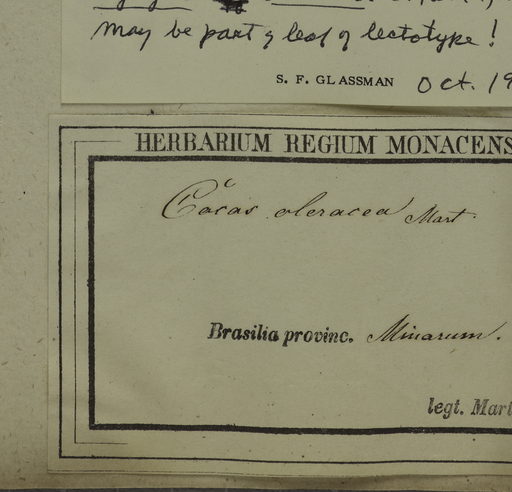 may be part of leaf of lectotype!
S. F. GLASSMAN Oct. 19
HERBARIUM REGIUM MONACENS
Cocos oleracea Mart.
Brasilia provinc. Minarum.
legt. Mart